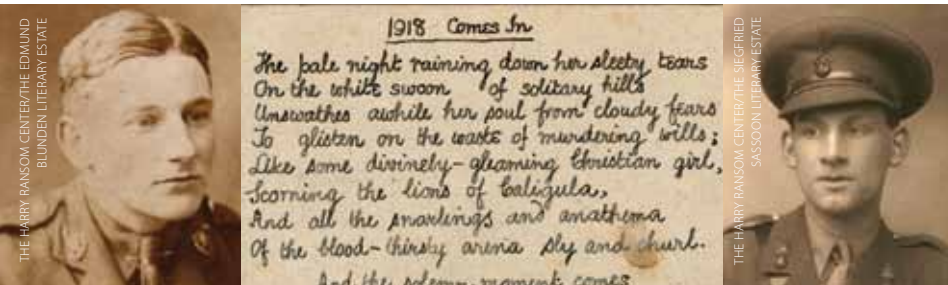 THE HARRY RANSOM CENTER/THE EDMUND
BLUNDEN LITERARY ESTATE
1918 Comes In
The pale night raining down her sleety tears
On the white swoon of solitary hills
Unswathes awhile her soul from cloudy fears
To glisten on the waste of murdering wills;
Like some divinely-gleaming Christian girl,
Scorning the lions of Caligula,
And all the snarlings and anathema
Of the blood-thirsty arena sly and churl.
And the solemn moment comes
THE HARRY RANSOM CENTER/THE SIEGFRIED
SASSOON LITERARY ESTATE